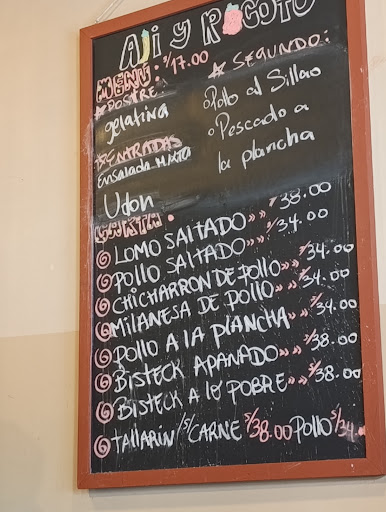 Ají y Rocoto
MENÚ: S/17.00
POSTRE:
gelatina
ENTRADAS
Ensalada Mixta
Udon
SEGUNDO:
Pollo al Sillao
Pescado a
la plancha
CARTA:
LOMO SALTADO »» S/38.00
POLLO SALTADO »» S/34.00
CHICHARRON DE POLLO »» S/34.00
MILANESA DE POLLO »» S/34.00
POLLO A LA PLANCHA »» S/34.00
BISTECK APANADO »» S/38.00
BISTECK A LO POBRE »» S/38.00
TALLARÍN S/ CARNE S/38.00 POLLO S/34.